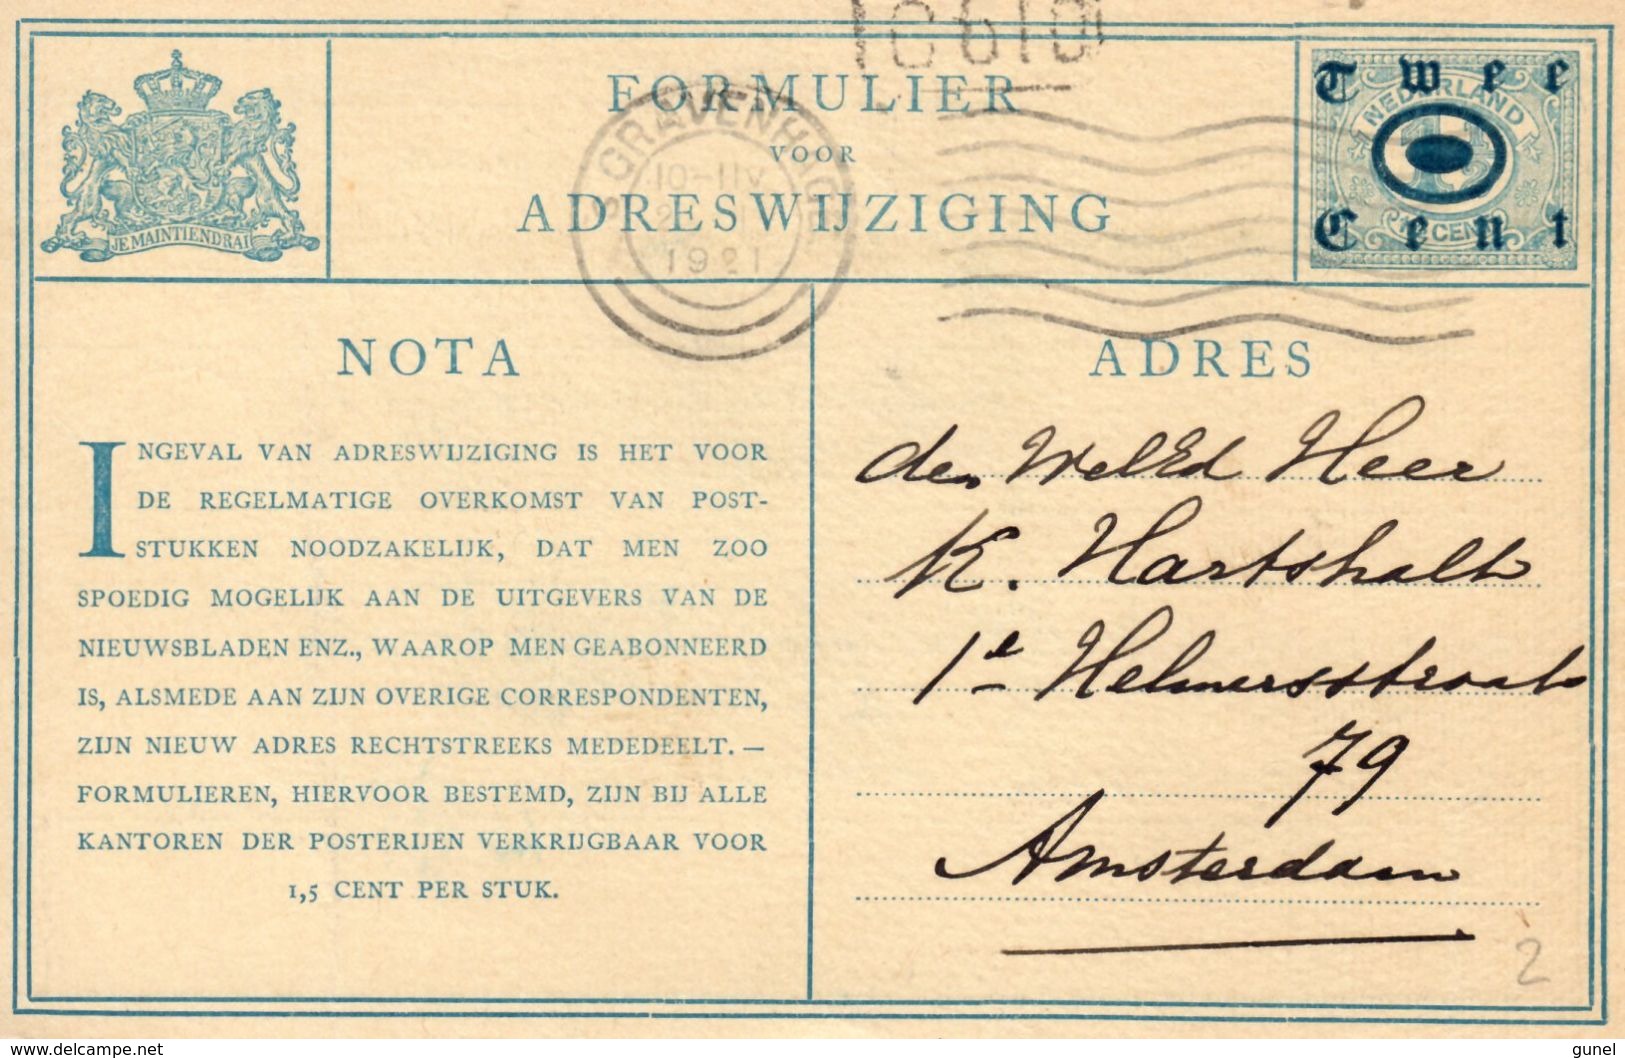 FORMULIER
VOOR
ADRESWIJZIGING
JE MAINTIENDRAI
Twee
NEDERLAND
CENT
Cent
'S GRAVENHAGE
10-11V
1921
NOTA
INGEVAL VAN ADRESWIJZIGING IS HET VOOR
DE REGELMATIGE OVERKOMST VAN POST-
STUKKEN NOODZAKELIJK, DAT MEN ZOO
SPOEDIG MOGELIJK AAN DE UITGEVERS VAN DE
NIEUWSBLADEN ENZ., WAAROP MEN GEABONNEERD
IS, ALSMEDE AAN ZIJN OVERIGE CORRESPONDENTEN,
ZIJN NIEUW ADRES RECHTSTREEKS MEDEDEELT. —
FORMULIEREN, HIERVOOR BESTEMD, ZIJN BIJ ALLE
KANTOREN DER POSTERIJEN VERKRIJGBAAR VOOR
1,5 CENT PER STUK.
ADRES
den WelEd Heer
K. Hartshalt
1e Helmersstraat
79
Amsterdam
2
www.delcampe.net
gunel